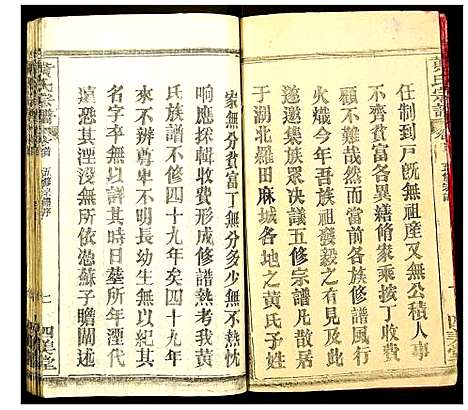 黄氏宗譜
任制到戸旣無祖産又無公積人事
不齊貧富各異繕脩家乘按丁收費
不難爲矣而各地修族譜風行
火熾今年吾族發毅之有見及此
遂邀集族眾決議五修宗譜凡散居
于湖北羅田麻城各地之黄氏子姓
家無分貧富丁無分多少無不熱忱
响應採輯收費形成修譜熱考我黃
氏族譜不修四十九年矣四十九年
來不辨尊卑不明長幼生無以紀其
名字卒無以誌其時日墓所年湮代
遠恐其湮沒無所依憑蘇子瞻闡述
黃氏宗譜 卷首 五修宗譜序 七 四美堂